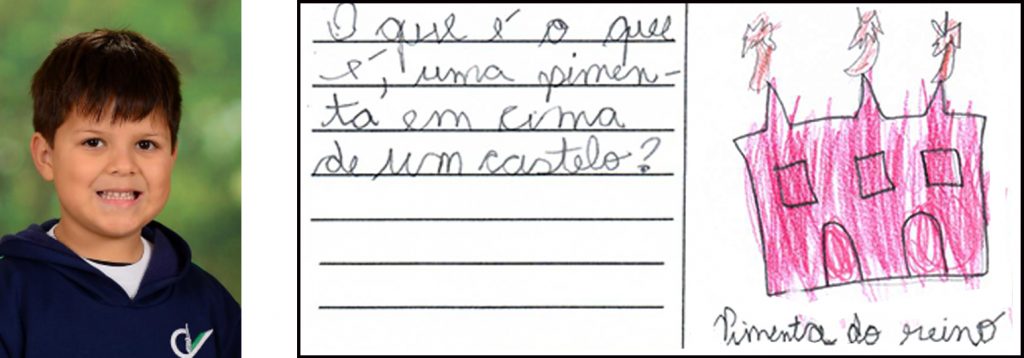 O que é o que
é, uma pimen-
ta em cima
de um castelo?
Pimenta do reino